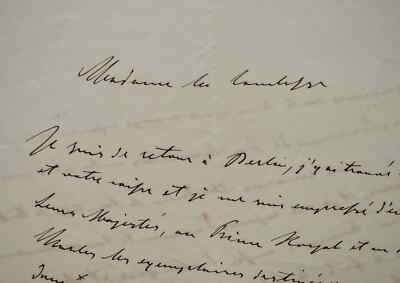 Madame la Comtesse
Je suis de retour à Berlin, j'y ai trouvé
et votre caisse et je me suis empressé d'en
Leurs Majestés, au Prince Royal et au
les exemplaires destinés